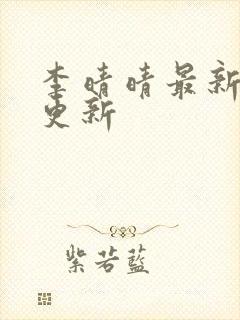 李晴晴最新
更新
紫若藍